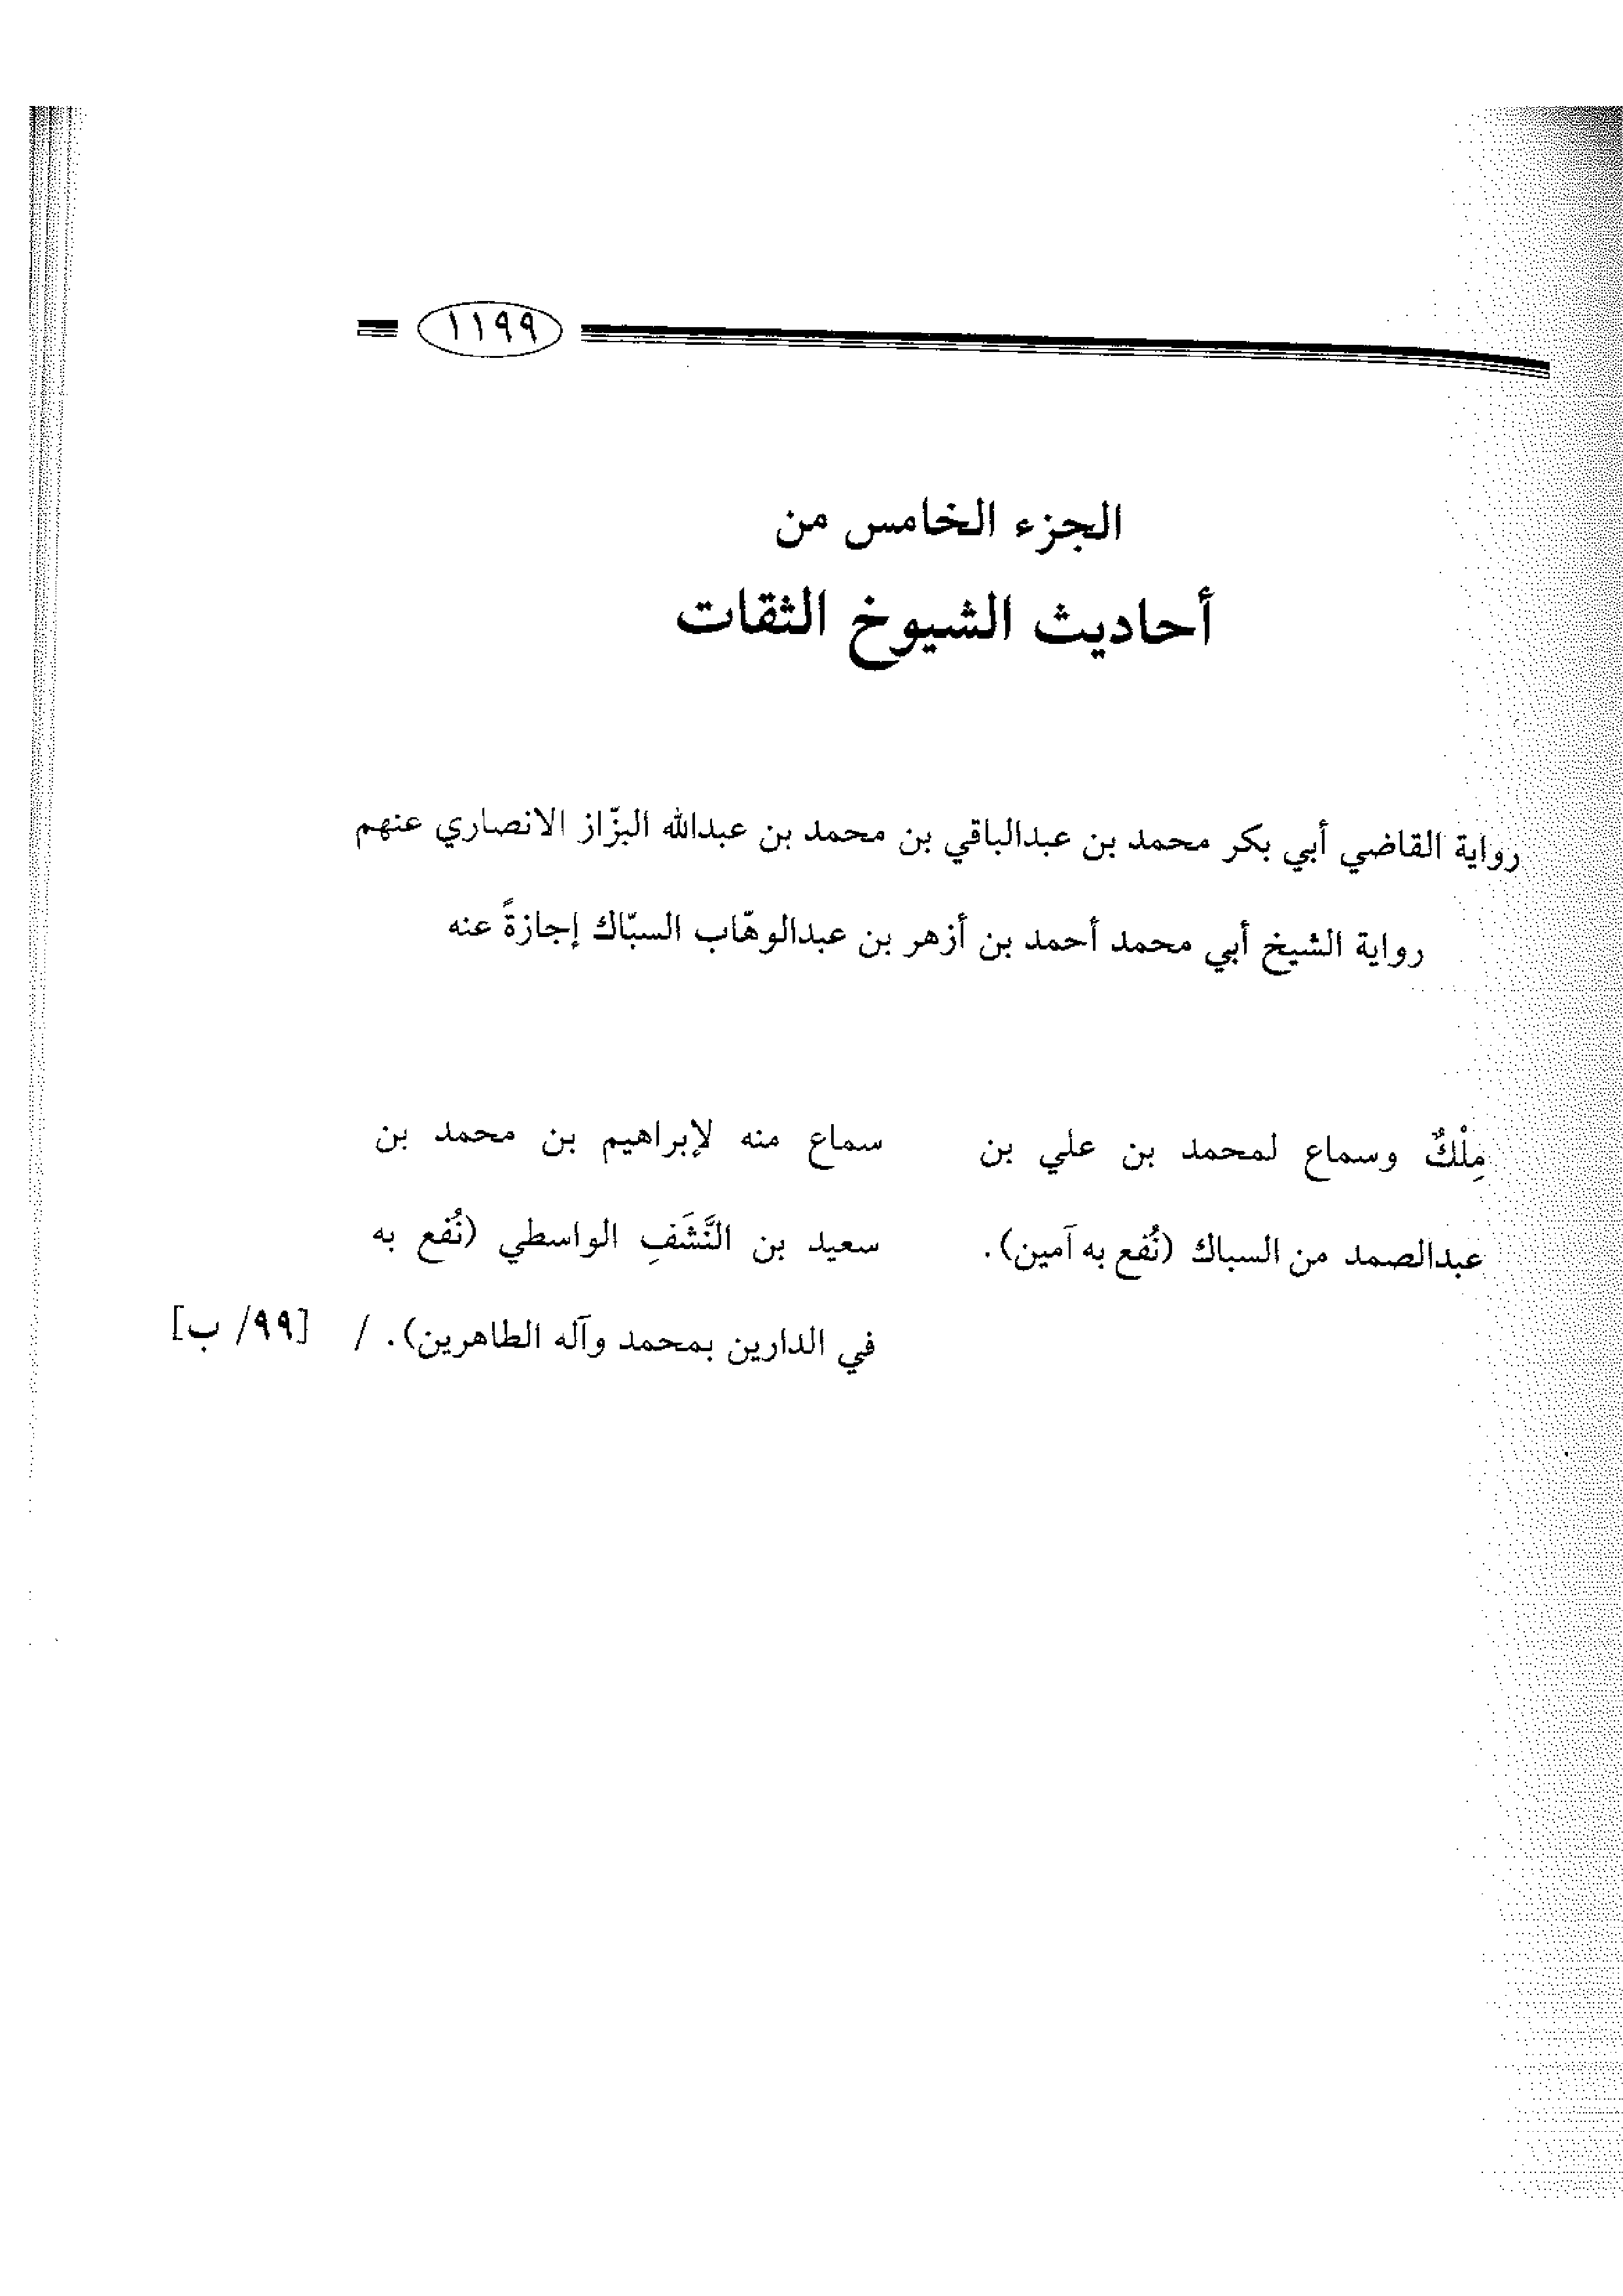 ١١٩٩
الجزء الخامس من
أحاديث الشيوخ الثقات
رواية القاضي أبي بكر محمد بن عبدالباقي بن محمد بن عبدالله البزّاز الانصاري عنهم
رواية الشيخ أبي محمد أحمد بن أزهر بن عبدالوهّاب السبّاك إجازةً عنه
مِلْكٌ وسماع لمحمد بن علي بن
عبدالصمد من السباك (نُفع به آمين).
سماع منه لإبراهيم بن محمد بن
سعيد بن النَّشَفِ الواسطي (نُفع به
في الدارين بمحمد وآله الطاهرين). / [٩٩/ ب]